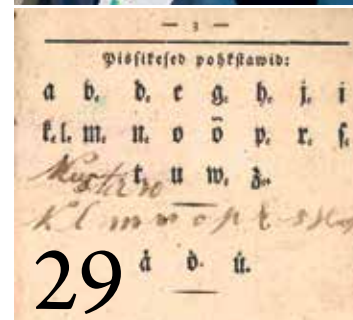 — 3 —
Pissikesed pohkstawid:
a b, d, e g, h, j, i
k, l, m, n, o õ p, r, s,
t, u w, z,
k l m n o p r s
29 å ö ů.